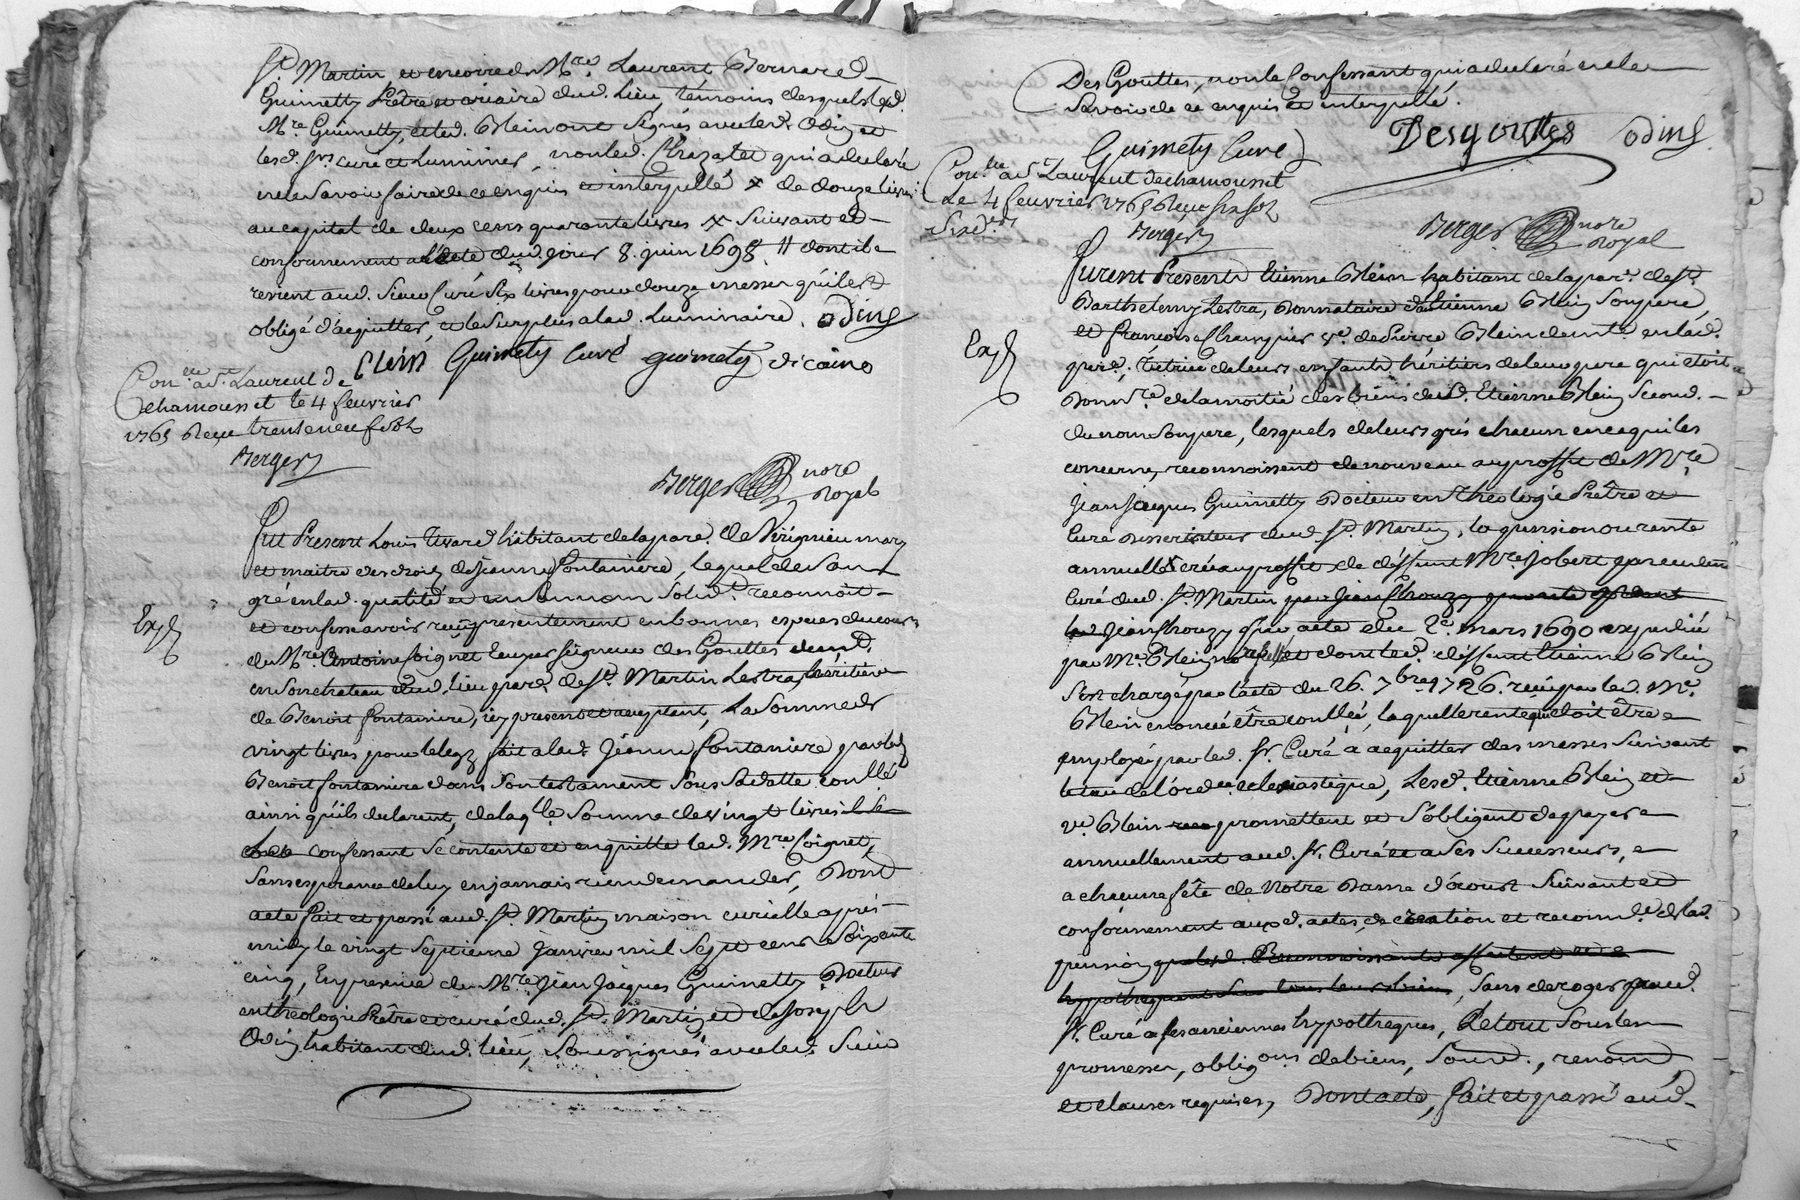 St. Martin, et encore de Mre. Laurent Bernard
Guimetty Prêtre et vicaire dud. lieu, témoins desquels led.
Mre Guimetty, et led. Blein ont signés avec led. Odin et
lesd. srs. curé et luminier, non led. Chazalet qui a déclaré
ne le savoir faire de ce enquis et interpellé x de douze livres
au capital de deux cens quarante livres x suivant et
conformement a l'acte dud. jour 8. juin 1698. // dont il
revient aud. sieur Curé six livres pour douze messes qu'il est
obligé d'acquitter, et le surplus a lad. luminaire. Odin
Blein Guimety Curé guimety vicaire
Conllé. a St. Laurent de
chamousset le 4 fevrier
1765 Reçu trente neuf sols
Berger
Berger nore
Royal
Fut Present Louis Tivard habitant de la parr. de Virignieu mary
et maitre des droits de Jeanne Fontaniere, lequel de son
gré en lad. qualité et en son nom solid. reconnoit
et confesse avoir reçu presentement en bonnes especes du cours
de Mre. Antoine Coignet Ecuyer seigneur des Gouttes demt.
en son chateau dud. lieu parr. de St. Martin Lestra, héritier
de Benoit fontaniere, icy present et acceptant, La somme de
vingt livres pour le legz fait a lad. Jeanne fontaniere par led.
Benoit fontaniere dans son testament sous sa datte conllé
ainsi qu'ils declarent, de laqlle somme de vingt livres
confessant se contente et en quitte led. Mre Coignet,
sans esperance de luy en jamais rien demander, Dont
acte fait et passé aud. St. Martin maison curialle après
midy le vingt septieme janvier mil sept cens soixante
cinq, En presence de Mre Jean Jacques Guimetty Docteur
en theologie Prêtre et curé dud. St. Martin et de Joseph
Odin habitant dud. lieu, soussignés avec led. sieur
Exp
Des Gouttes, non le Confessant qui a declaré ne le
savoir de ce enquis et interpellé.
Desgouttes Odin
Guimety Curé
Conllé a St Laurent de chamousset
Le 4 fevrier 1765 Reçu six sols
six den.
Berger
Berger nore
Royal
Furent Presents Etienne Blein habitant de la parr. de St.
Barthelemy Lestra, Donnataire d'autre Etienne Blein son pere
et francoise Charpier ve. de Pierre Blein demte. en lad.
parr., tutrice de leurs enfants héritiers de leur pere qui étoit
Donnre. de la moitié des biens dud. Etienne Blein second
du nom son pere, lesquels de leurs grés chacun en ce qui les
concerne, reconnoissent de nouveau au proffit de Mre
Jean Jacques Guimetty Docteur en theologie Prêtre et
Curé desserviteur dud. St. Martin, la pension ou rente
annuelle créé au proffit de deffunt Mre Jobert
Curé dud. St. Martin par Jean Chouzy
Jean Chouzy par acte du 2e. mars 1690 expedié
par Me. Blein nore et dont led. deffunt Etienne Blein
s'est chargé par l'acte du 26. 7bre 1726. reçu par led. Me.
Blein enoncée être conllée, laquelle rente doit être
employée par led. sr. Curé a acquitter des messes suivant
de l'ordce. eclesiastique, Lesd. Etienne Blein et
ve. Blein promettent et s'obligent de payer
annuellement aud. sr. Curé et a ses successeurs,
a chacune fête de Notre Dame d'aoust suivant et
conformement auxd. actes de création et reconnce. de lad.
pension, sans deroger par led.
sr. Curé a ses anciennes hypotheques, Le tout sous les
promesses, obligons de biens, soumd., renond.
et clauses requises, Dont acte, fait et passé aud.
Exp